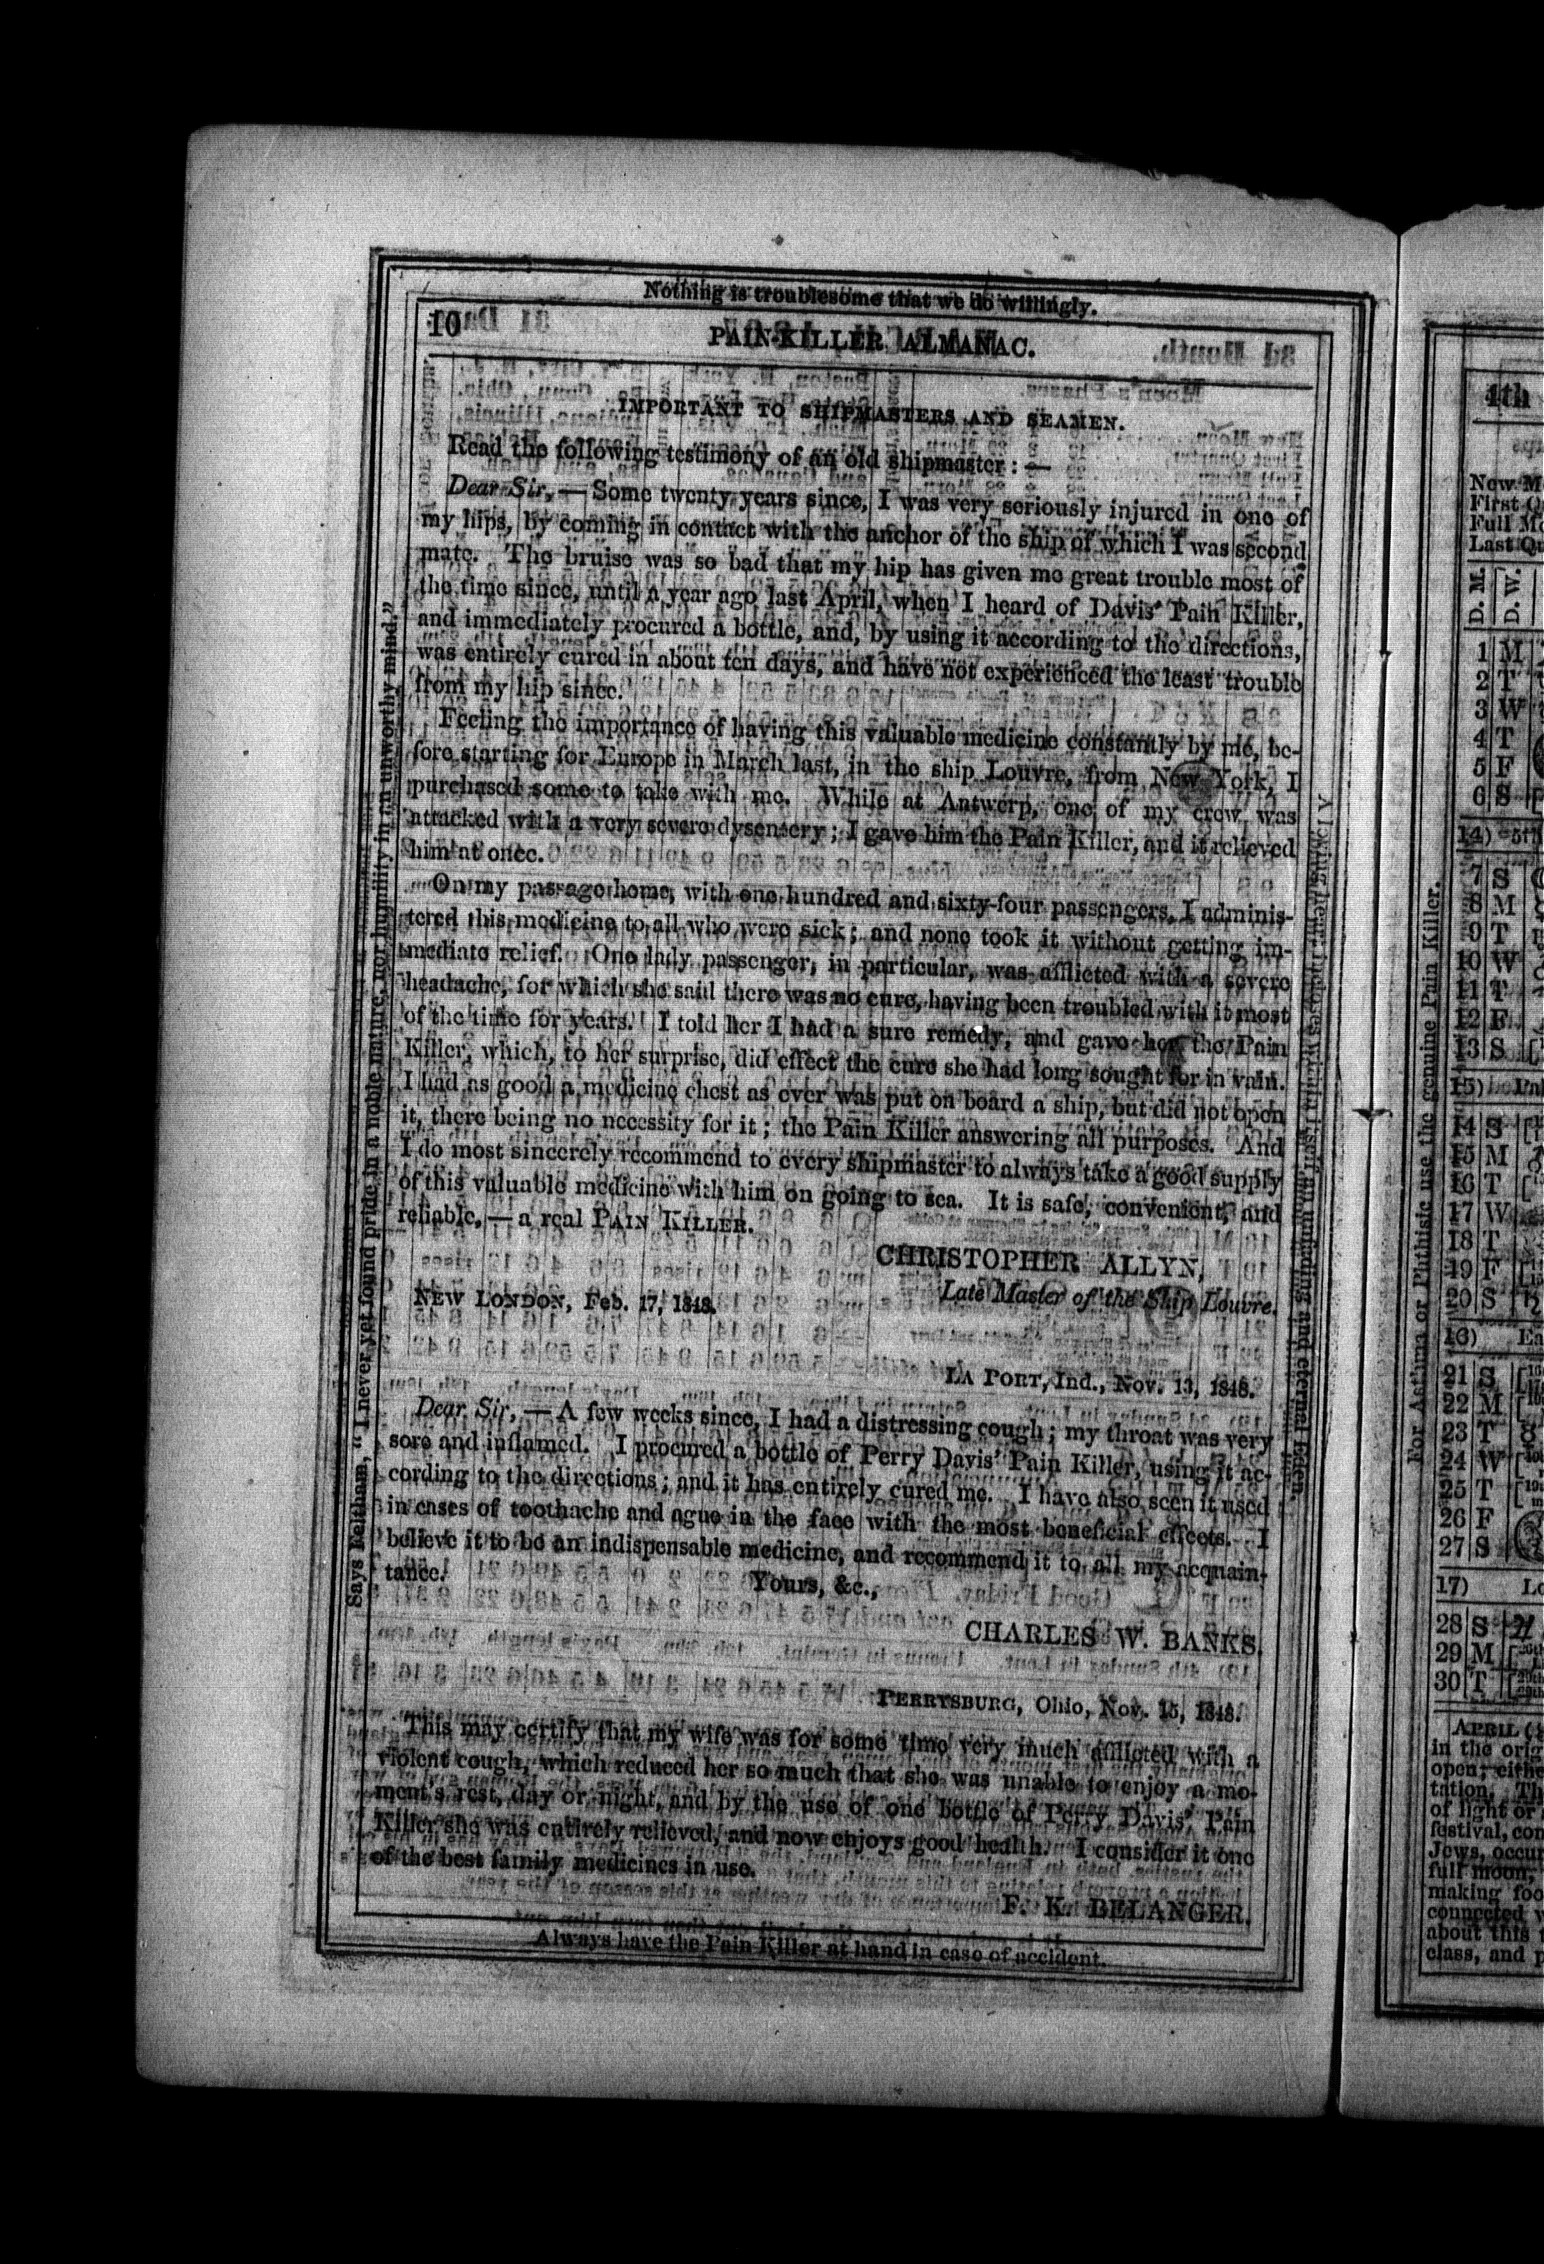 Nothing is troublesome that we do willingly.
10
PAIN-KILLER ALMANAC.
IMPORTANT TO SHIPMASTERS AND SEAMEN.
Read the following testimony of an old shipmaster: —
Dear Sir, — Some twenty years since, I was very seriously injured in one of
my hips, by coming in contact with the anchor of the ship of which I was second
mate. The bruise was so bad that my hip has given me great trouble most of
the time since, until a year ago last April, when I heard of Davis' Pain Killer,
and immediately procured a bottle, and, by using it according to the directions,
was entirely cured in about ten days, and have not experienced the least trouble
from my hip since.
Feeling the importance of having this valuable medicine constantly by me, be-
fore starting for Europe in March last, in the ship Louvre, from New York, I
purchased some to take with me. While at Antwerp, one of my crew was
attacked with a very severe dysentery; I gave him the Pain Killer, and it relieved
him at once.
On my passage home, with one hundred and sixty-four passengers, I adminis-
tered this medicine to all who were sick; and none took it without getting im-
mediate relief. One lady passenger, in particular, was afflicted with a severe
headache, for which she said there was no cure, having been troubled with it most
of the time for years. I told her I had a sure remedy, and gave her the Pain
Killer, which, to her surprise, did effect the cure she had long sought for in vain.
I had as good a medicine chest as ever was put on board a ship, but did not open
it, there being no necessity for it; the Pain Killer answering all purposes. And
I do most sincerely recommend to every shipmaster to always take a good supply
of this valuable medicine with him on going to sea. It is safe, convenient, and
reliable, — a real PAIN KILLER.
CHRISTOPHER ALLYN,
Late Master of the Ship Louvre.
NEW LONDON, Feb. 17, 1848.
LA PORT, Ind., Nov. 13, 1848.
Dear Sir, — A few weeks since, I had a distressing cough; my throat was very
sore and inflamed. I procured a bottle of Perry Davis' Pain Killer, using it ac-
cording to the directions; and it has entirely cured me. I have also seen it used
in cases of toothache and ague in the face with the most beneficial effects. I
believe it to be an indispensable medicine, and recommend it to all my acquain-
tance.
Yours, &c.,
CHARLES W. BANKS.
PERRYSBURG, Ohio, Nov. 15, 1848.
This may certify that my wife was for some time very much afflicted with a
violent cough, which reduced her so much that she was unable to enjoy a mo-
ment's rest, day or night, and by the use of one bottle of Perry Davis' Pain
Killer she was entirely relieved, and now enjoys good health. I consider it one
of the best family medicines in use.
F. K. BELANGER.
Always have the Pain Killer at hand in case of accident.
Says Feltham, "I never yet found pride in a noble nature, nor humility in an unworthy mind."
A loving heart incloses within itself an unfading and eternal Eden.
For Asthma or Phthisic use the genuine Pain Killer.
4th
New M
First Q
Full Mo
Last Qu
D. M.
D. W.
1 M
2 T
3 W
4 T
5 F
6 S
14) 5th
7 S
8 M
9 T
10 W
11 T
12 F
13 S
15) Pal
14 S
15 M
16 T
17 W
18 T
19 F
20 S
16) Ea
21 S
22 M
23 T
24 W
25 T
26 F
27 S
17) Lo
28 S
29 M
30 T
APRIL
in the orig
open; eithe
tation. Th
of light or
festival, con
Jews, occur
full moon,
making foo
connected w
about this t
class, and p